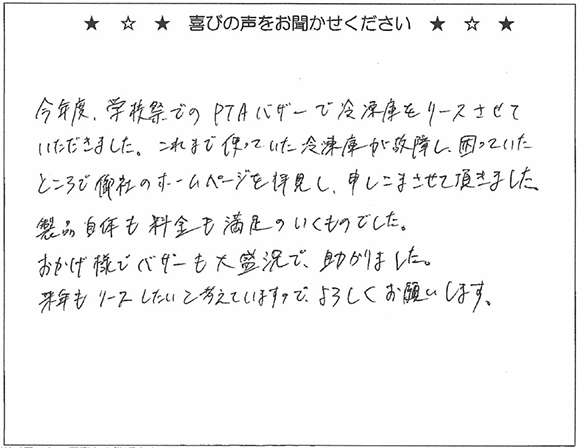 ★ ☆ ★ 喜びの声をお聞かせください ★ ☆ ★
今年度、学校祭でのPTAバザーで冷凍庫をリースさせて
いただきました。これまで使っていた冷凍庫が故障し、困っていた
ところで御社のホームページを拝見し、申しこまさせて頂きました
製品自体も料金も満足のいくものでした。
おかげ様でバザーも大盛況で、助かりました。
来年もリースしたいと考えていますので、よろしくお願いします。